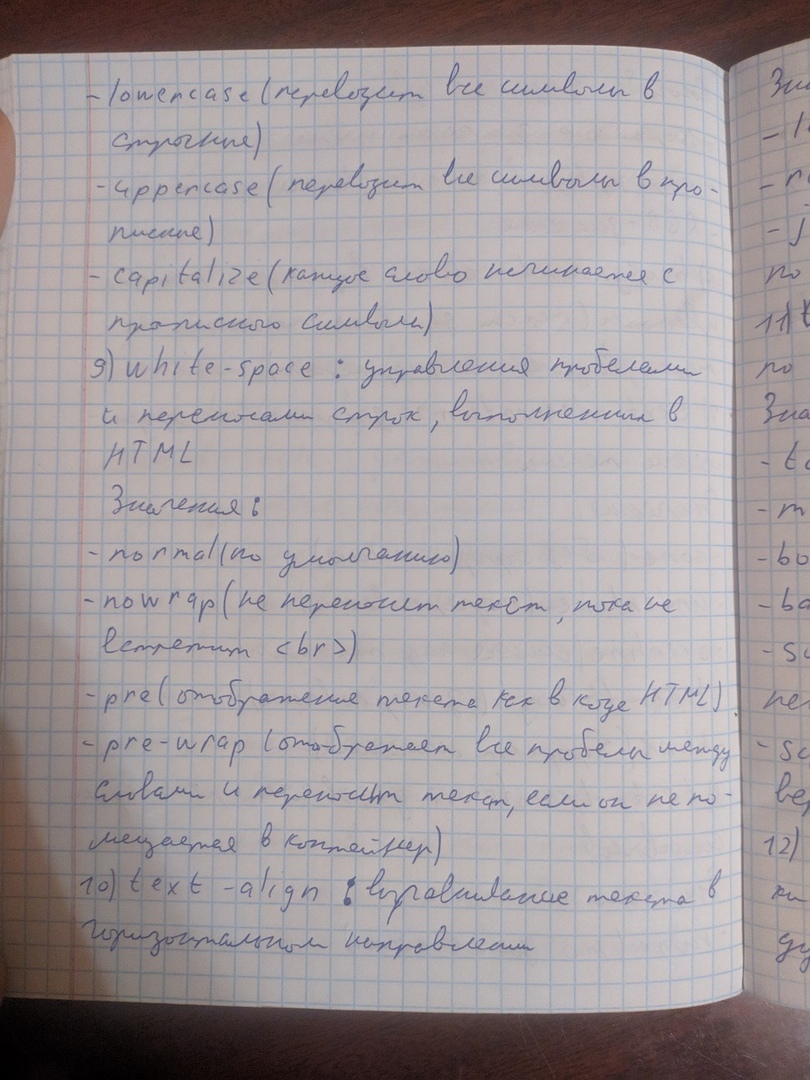 - lowercase (переводит все символы в
строчные)
- uppercase (переводит все символы в про-
писные)
- capitalize (каждое слово начинается с
прописного символа)
9) white-space : управления пробелами
и переносами строк, выполненным в
HTML
Значения :
- normal (по умолчанию)
- nowrap (не переносит текст, пока не
встретит <br>)
- pre (отображение текста как в коде HTML)
- pre-wrap (отображает все пробелы между
словами и переносит текст, если он не по-
мещается в контейнер)
10) text-align : выравнивание текста в
горизонтальном направлении
Зна
- l
- r
- j
по
11) t
по
Зна
- to
- m
- bo
- ba
- su
- su
вер
12)